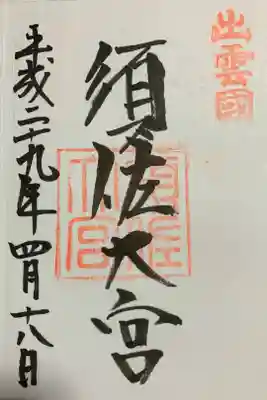 出雲國
須佐大宮
平成二十九年四月十八日